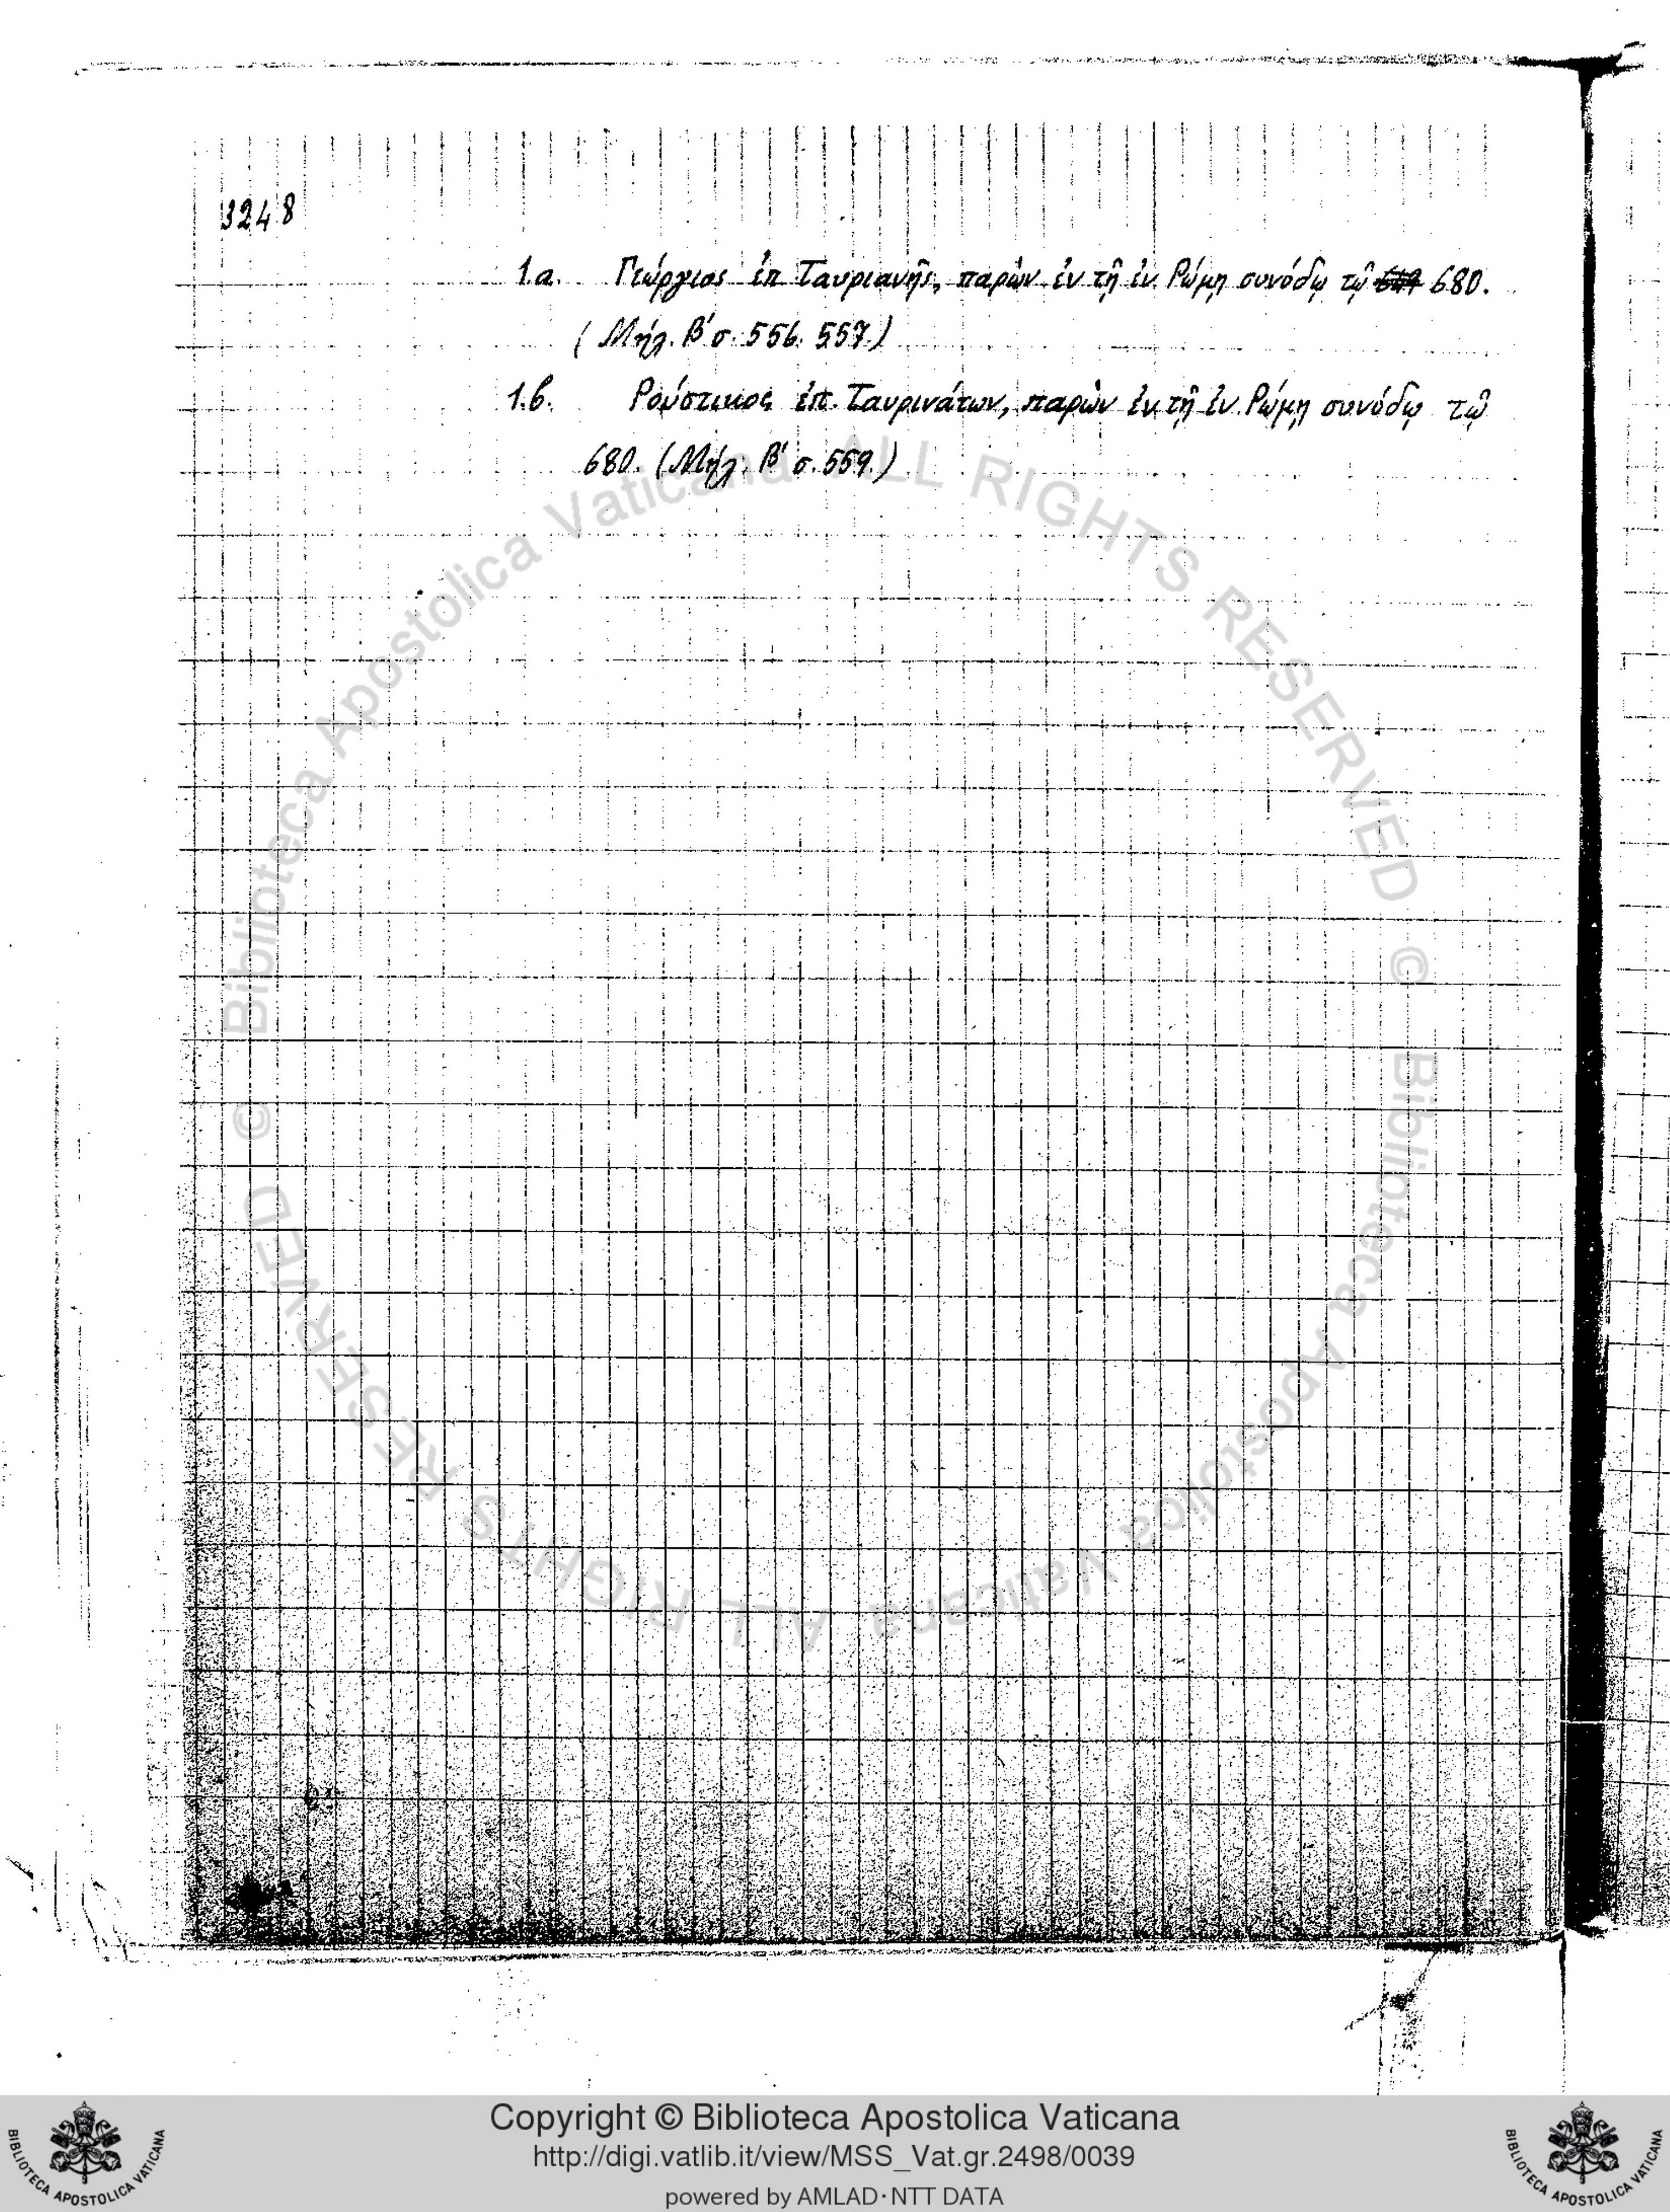 3248
1.α. Γεώργιος ἐπ Ταυριανῆς, παρὼν ἐν τῇ ἐν Ρώμῃ συνόδῳ τῷ 680.
(Μήλ. Β΄ σ. 556. 557.)
1.β. Ρούστικος ἐπ. Ταυρινάτων, παρὼν ἐν τῇ ἐν Ρώμῃ συνόδῳ τῷ
680. (Μήλ. Β΄ σ. 559.)
© Biblioteca Apostolica Vaticana ALL RIGHTS RESERVED
© Biblioteca Apostolica Vaticana ALL RIGHTS RESERVED
Copyright © Biblioteca Apostolica Vaticana
http://digi.vatlib.it/view/MSS_Vat.gr.2498/0039
powered by AMLAD·NTT DATA
BIBLIOTECA APOSTOLICA VATICANA
BIBLIOTECA APOSTOLICA VATICANA